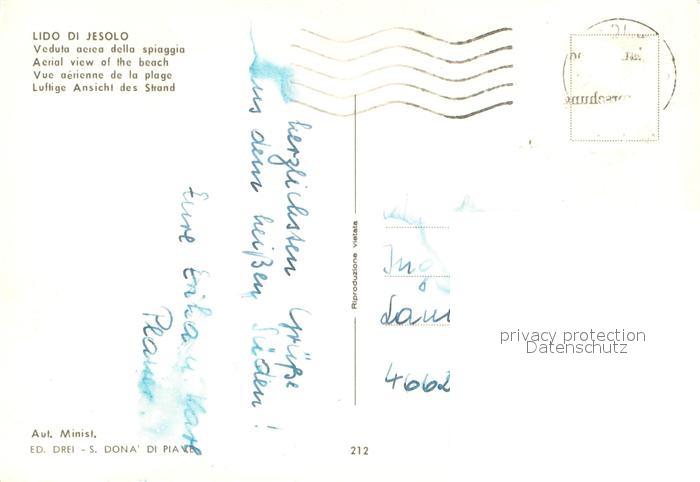 LIDO DI JESOLO
Veduta aerea della spiaggia
Aerial view of the beach
Vue aérienne de la plage
Luftige Ansicht des Strand
herzlichsten Grüße
aus dem heißen Süden!
Eure
Riproduzione vietata
Ing
4662
privacy protection
Datenschutz
Aut. Minist.
ED. DREI - S. DONA' DI PIAVE
212